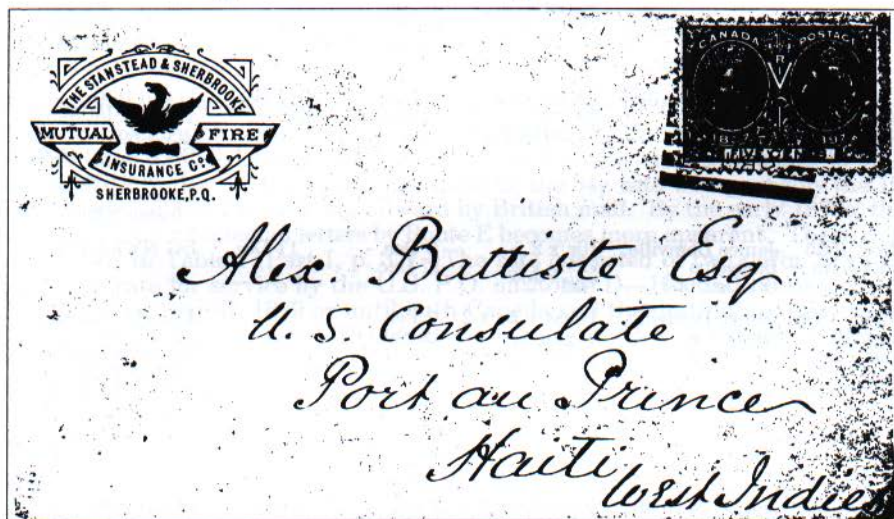 THE STANSTEAD & SHERBROOKE
MUTUAL FIRE
INSURANCE Co.
SHERBROOKE, P.Q.
CANADA POSTAGE
V R
Alex. Battiste Esq
U. S. Consulate
Port au Prince
Haiti
West Indies